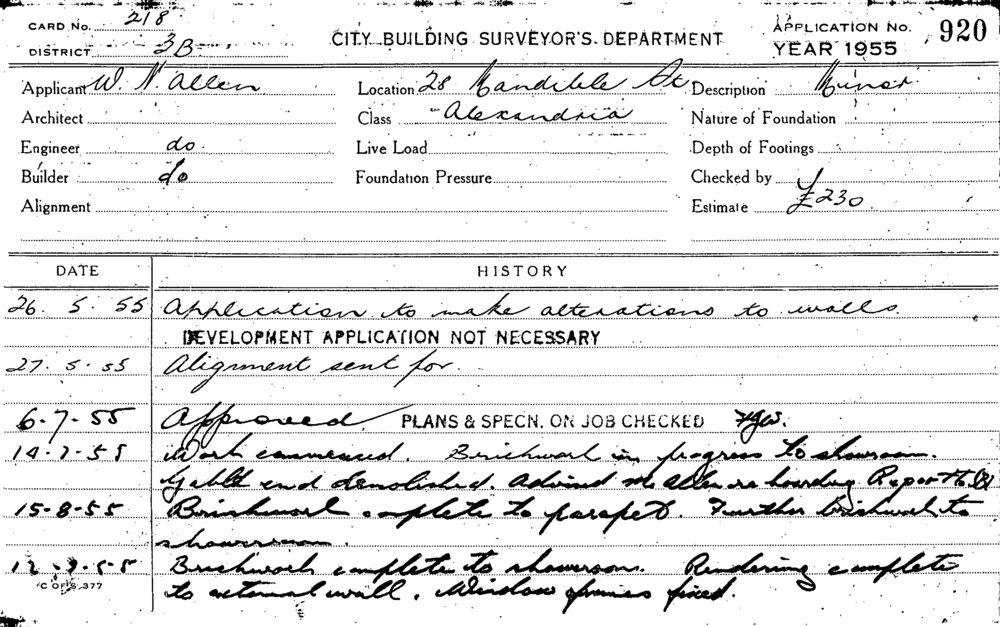 CARD No. 218
DISTRICT 3B
CITY BUILDING SURVEYOR'S DEPARTMENT
APPLICATION No. 920
YEAR 1955
Applicant W. N. Allen
Location 28 Mandible St
Description Minor
Architect
Class Alexandria
Nature of Foundation
Engineer do.
Live Load
Depth of Footings
Builder do
Foundation Pressure
Checked by
Alignment
Estimate £230
DATE HISTORY
26. 5. 55 Application to make alterations to walls.
DEVELOPMENT APPLICATION NOT NECESSARY
27. 5. 55 Alignment sent for.
6-7-55 Approved PLANS & SPECN. ON JOB CHECKED
14-7-55 Work commenced. Brickwork in progress to showroom.
Gable end demolished. Advised Mr Allen re hoarding Report to
15-8-55 Brickwork complete to parapet. Further brickwork to
showroom.
12-9-55 Brickwork complete to showroom. Rendering complete
C OF S. 377
to external wall. Window frames fixed.